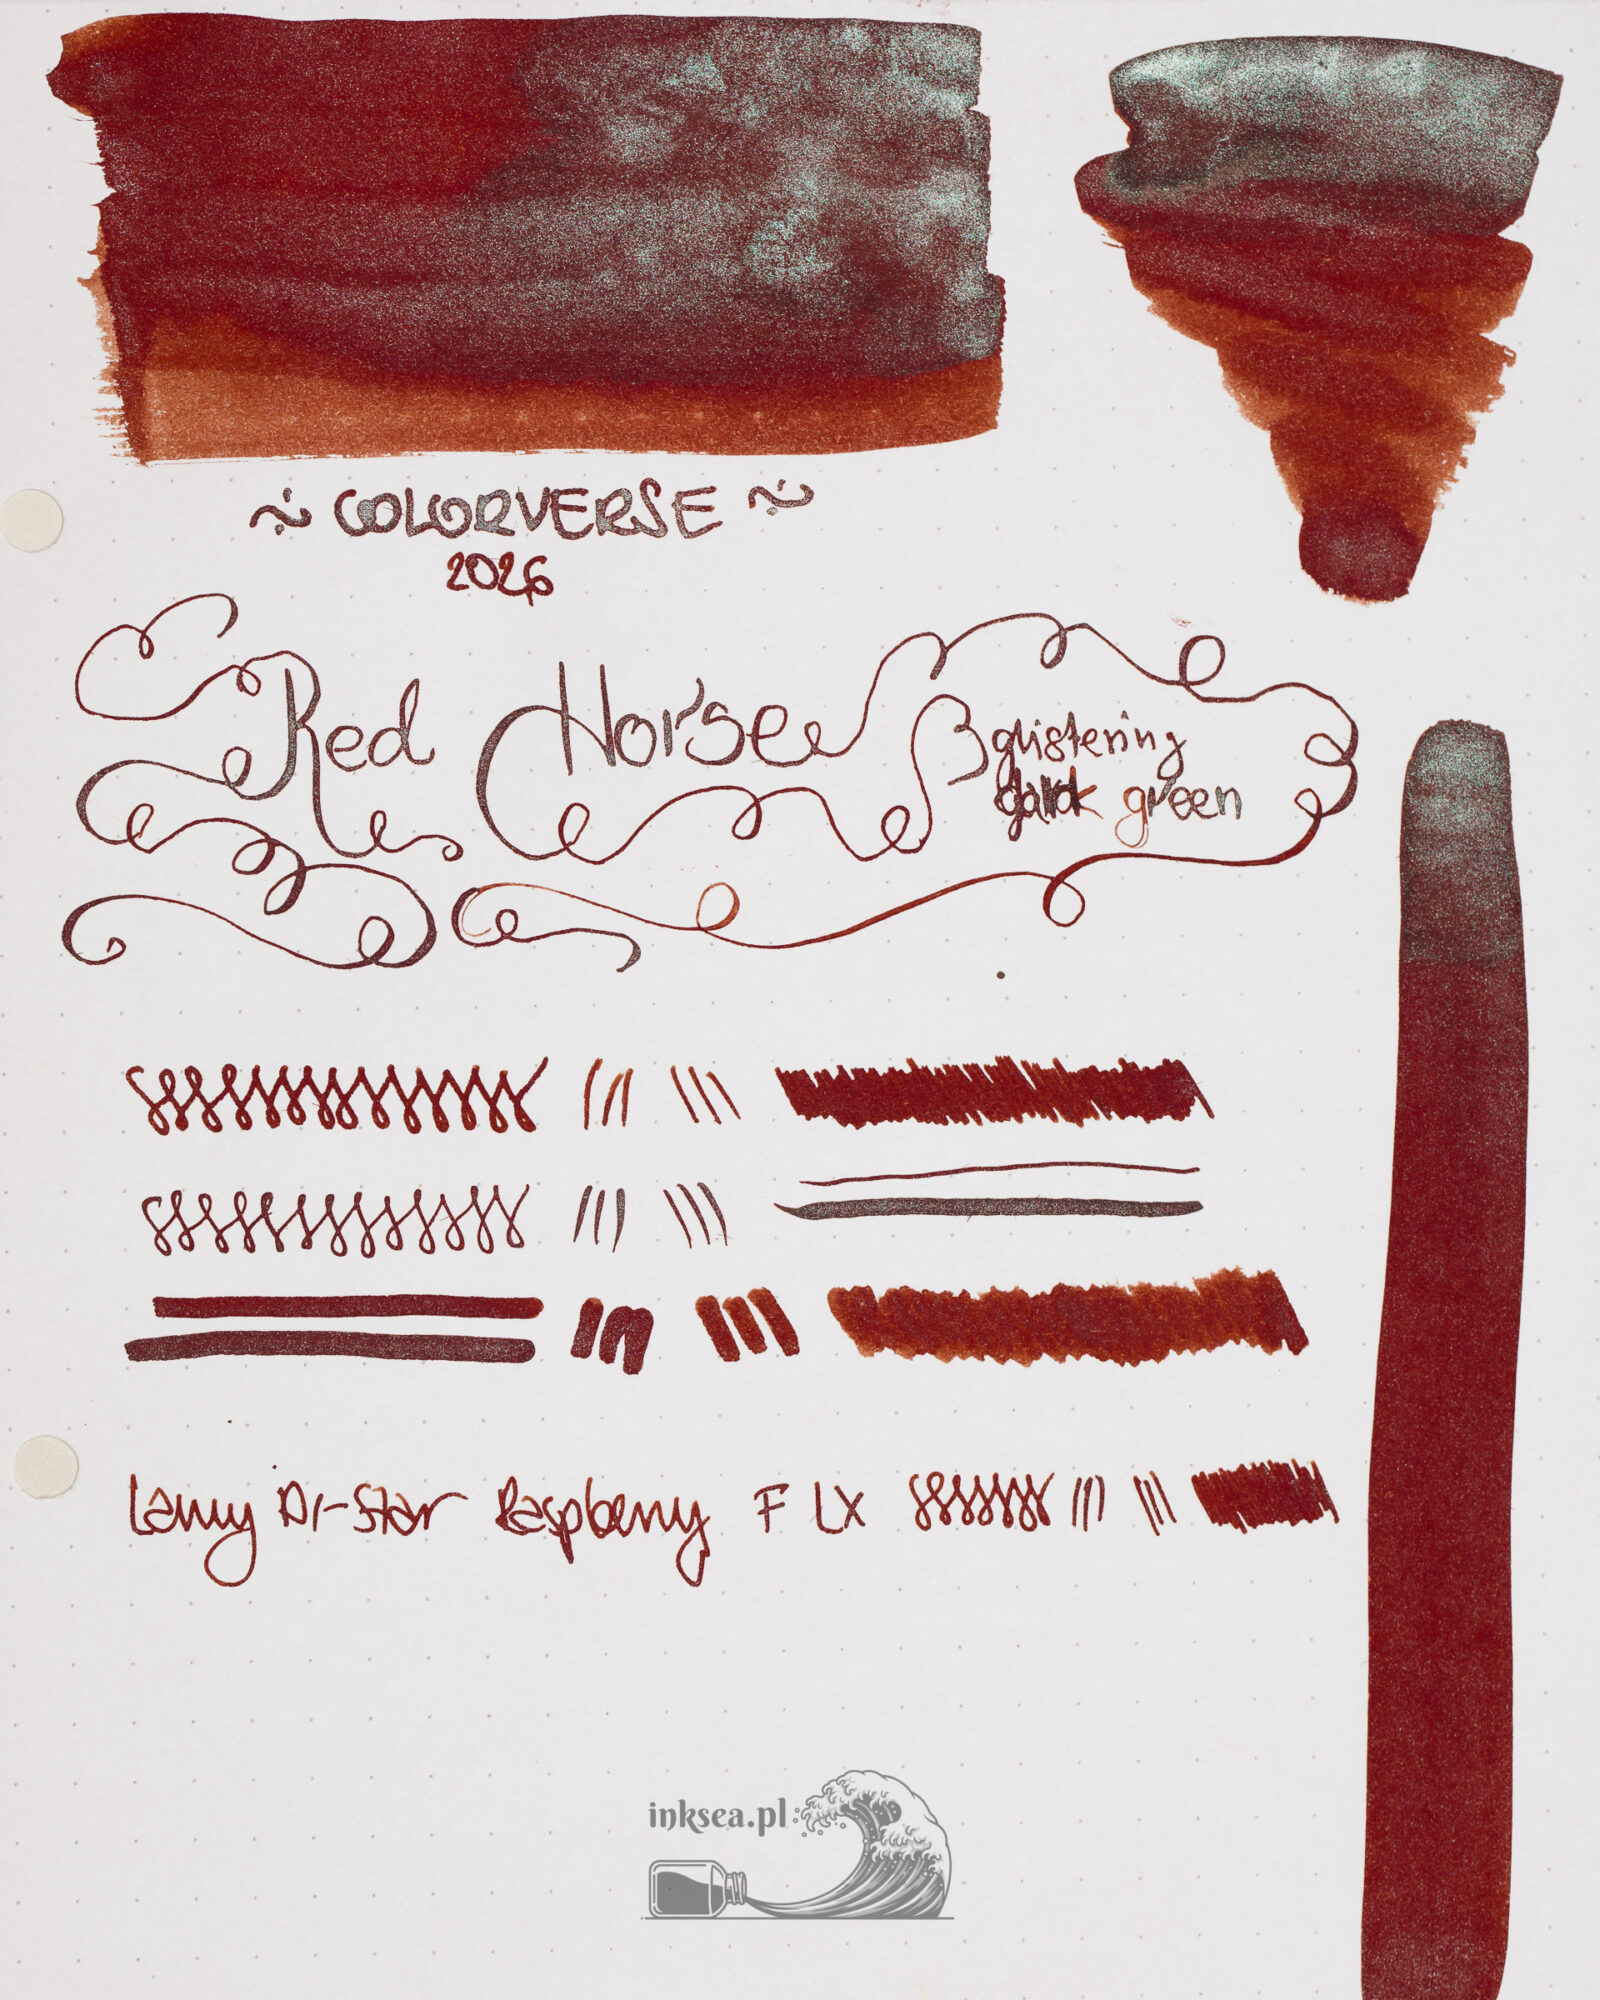 ~ COLORVERSE ~
2026
Red Horse
glistening
dark green
Lamy Al-Star Raspberry F LX
inksea.pl